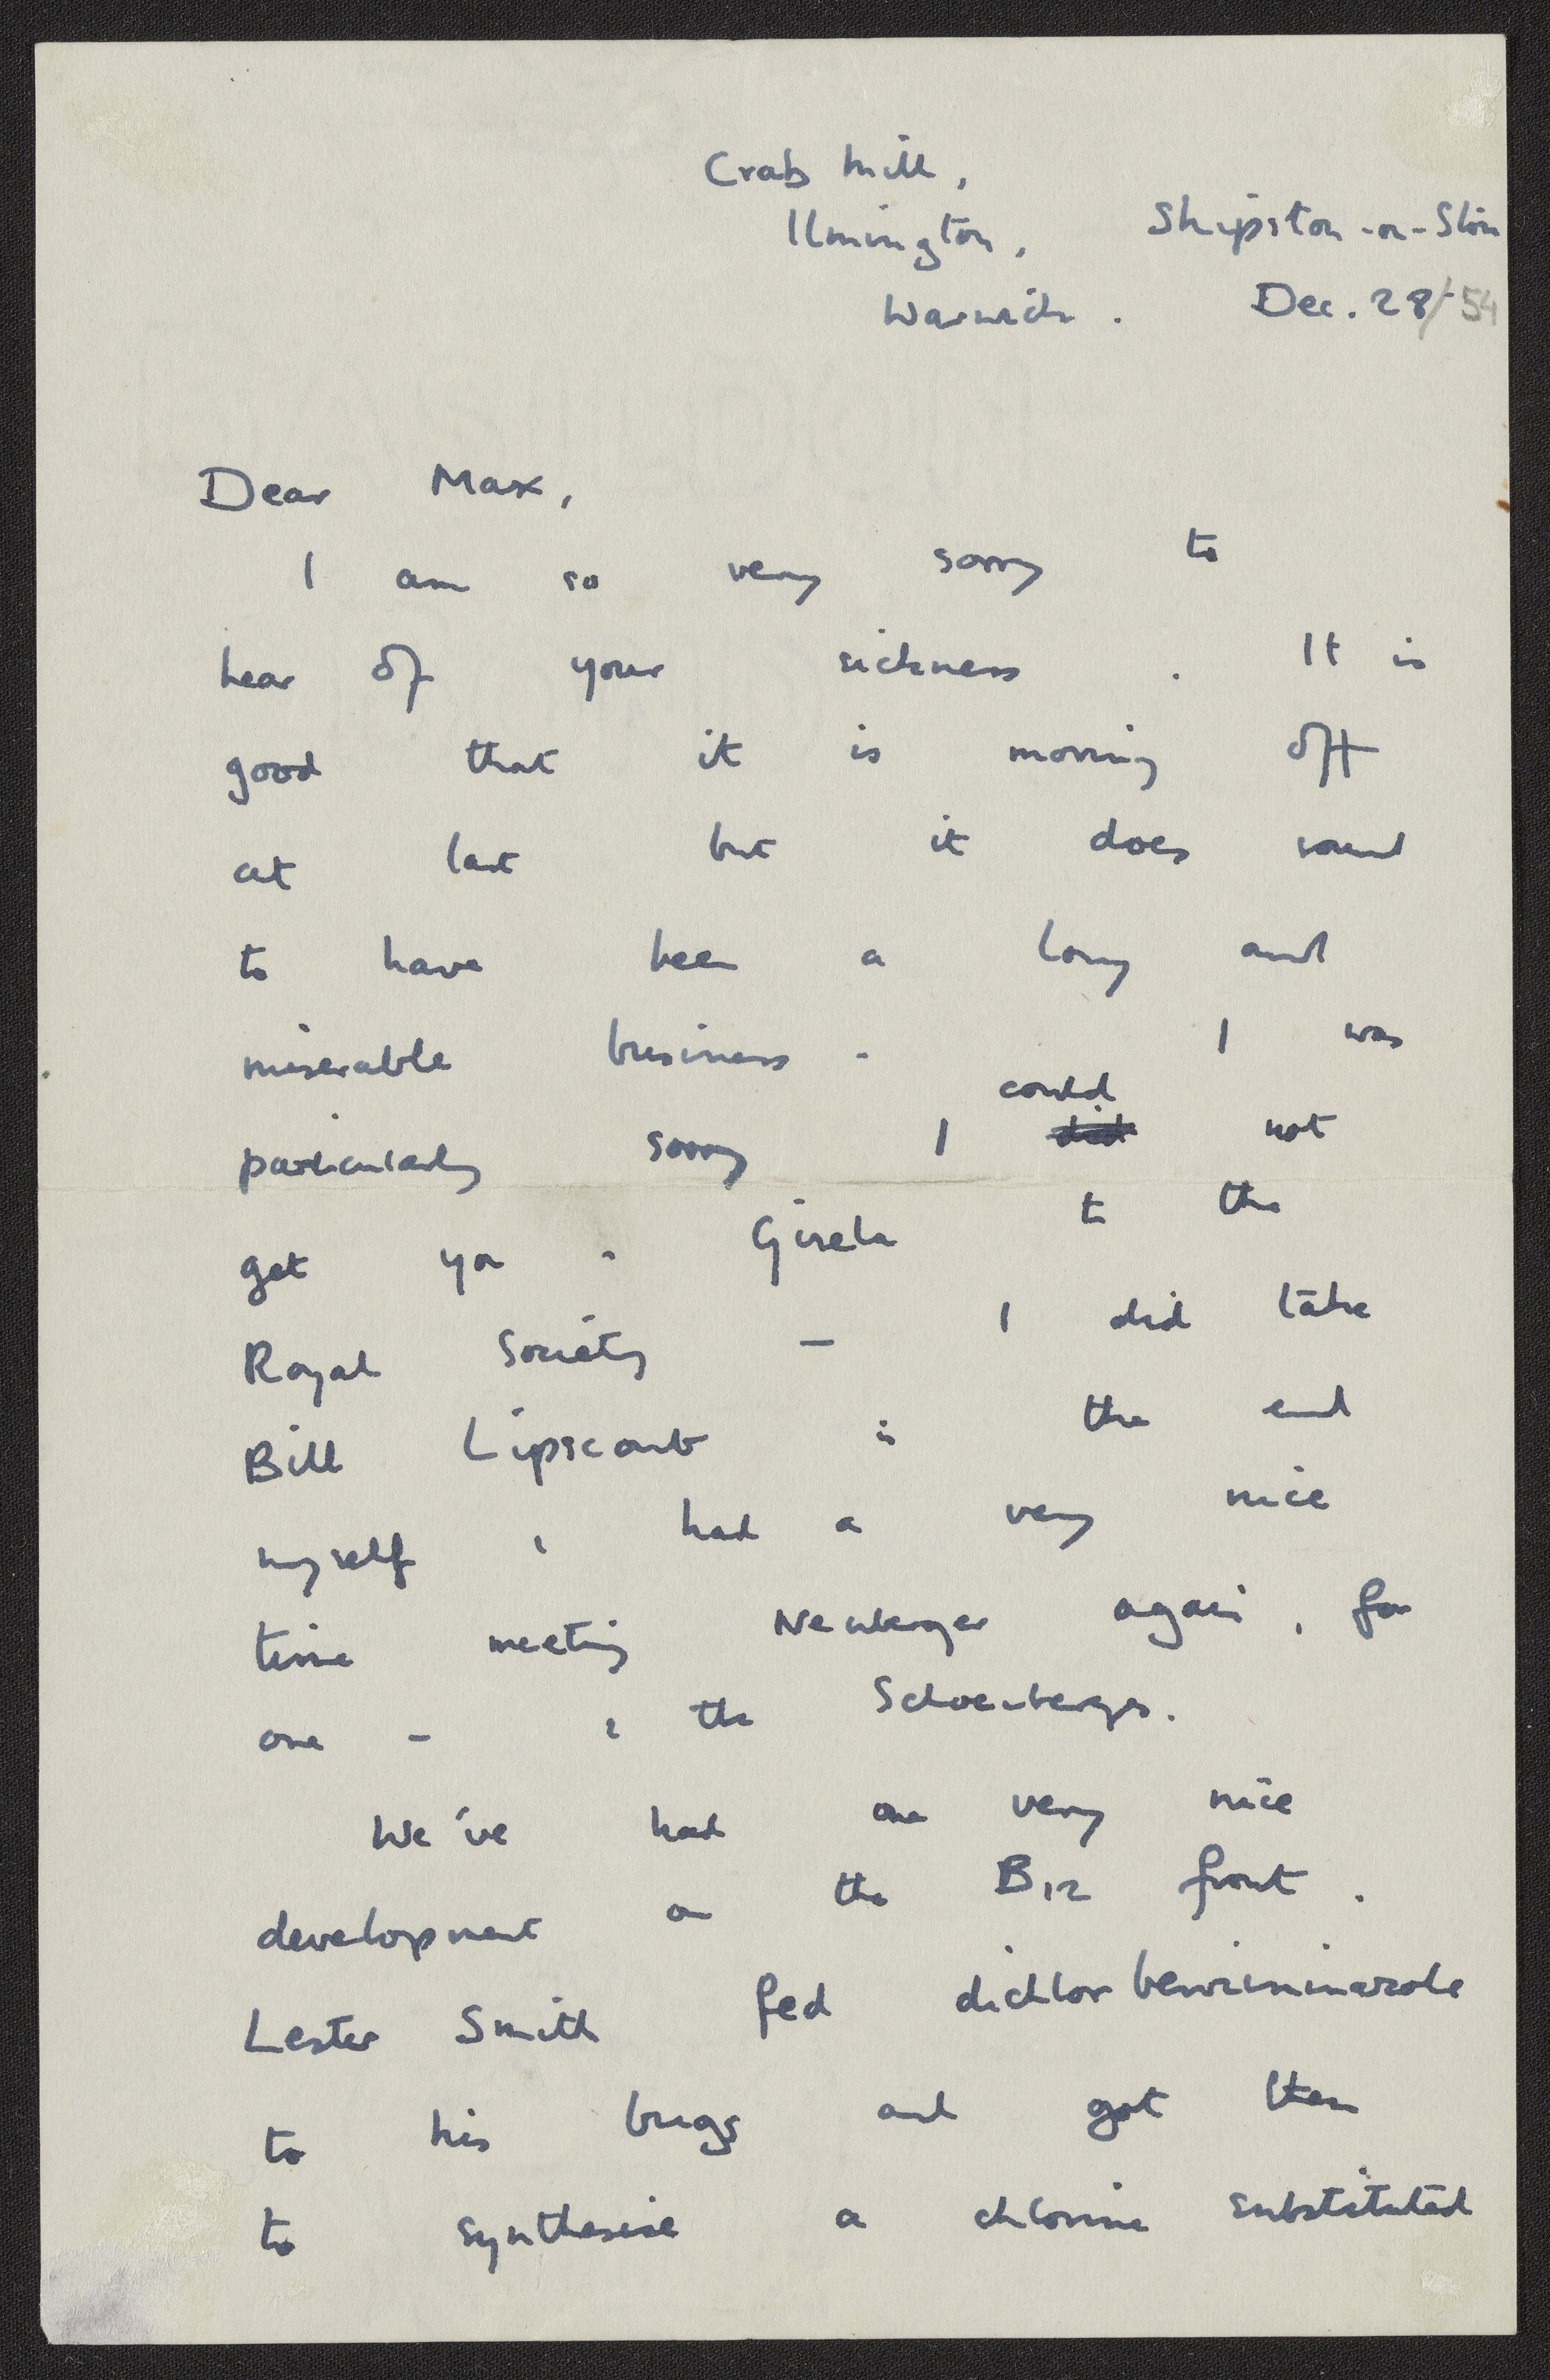 Crab Mill,
Ilmington, Shipston-on-Stour
Warwick. Dec. 28/54
Dear Max,
I am so very sorry to
hear of your sickness. It is
good that it is moving off
at last but it does sound
to have been a long and
miserable business. I was
could
particularly sorry I did not
get you & Gisela to the
Royal Society – I did take
Bill Lipscomb in the end
myself & had a very nice
time meeting Neuberger again, for
one – & the Schoenbergs.
We've had one very nice
development on the B12 front.
Lester Smith fed dichlorbenziminazole
to his bugs and got them
to synthesise a chlorine substituted